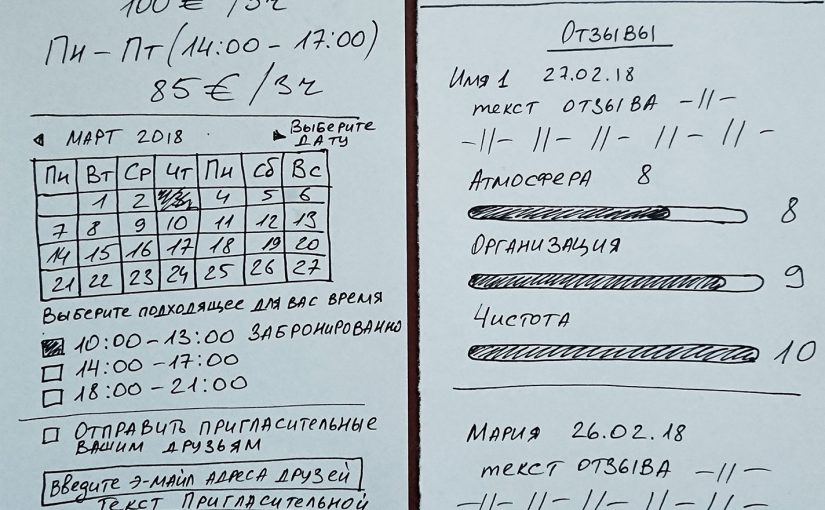 100 € /3ч
Пн – Пт (14:00 – 17:00)
85 € /3ч
МАРТ 2018
Выберите
дату
Пн Вт Ср Чт Пн Сб Вс
1 2 3 4 5 6
7 8 9 10 11 12 13
14 15 16 17 18 19 20
21 22 23 24 25 26 27
Выберите подходящее для вас время
10:00 – 13:00 забронированно
14:00 – 17:00
18:00 – 21:00
Отправить пригласительные
вашим друзьям
Введите э-майл адреса друзей
Текст пригласительной
Отзывы
Имя 1 27.02.18
текст отзыва –//–
–//– //– //– //– //–
Атмосфера 8
8
Организация
9
Чистота
10
Мария 26.02.18
текст отзыва –//–
–//– //– //– //– //–